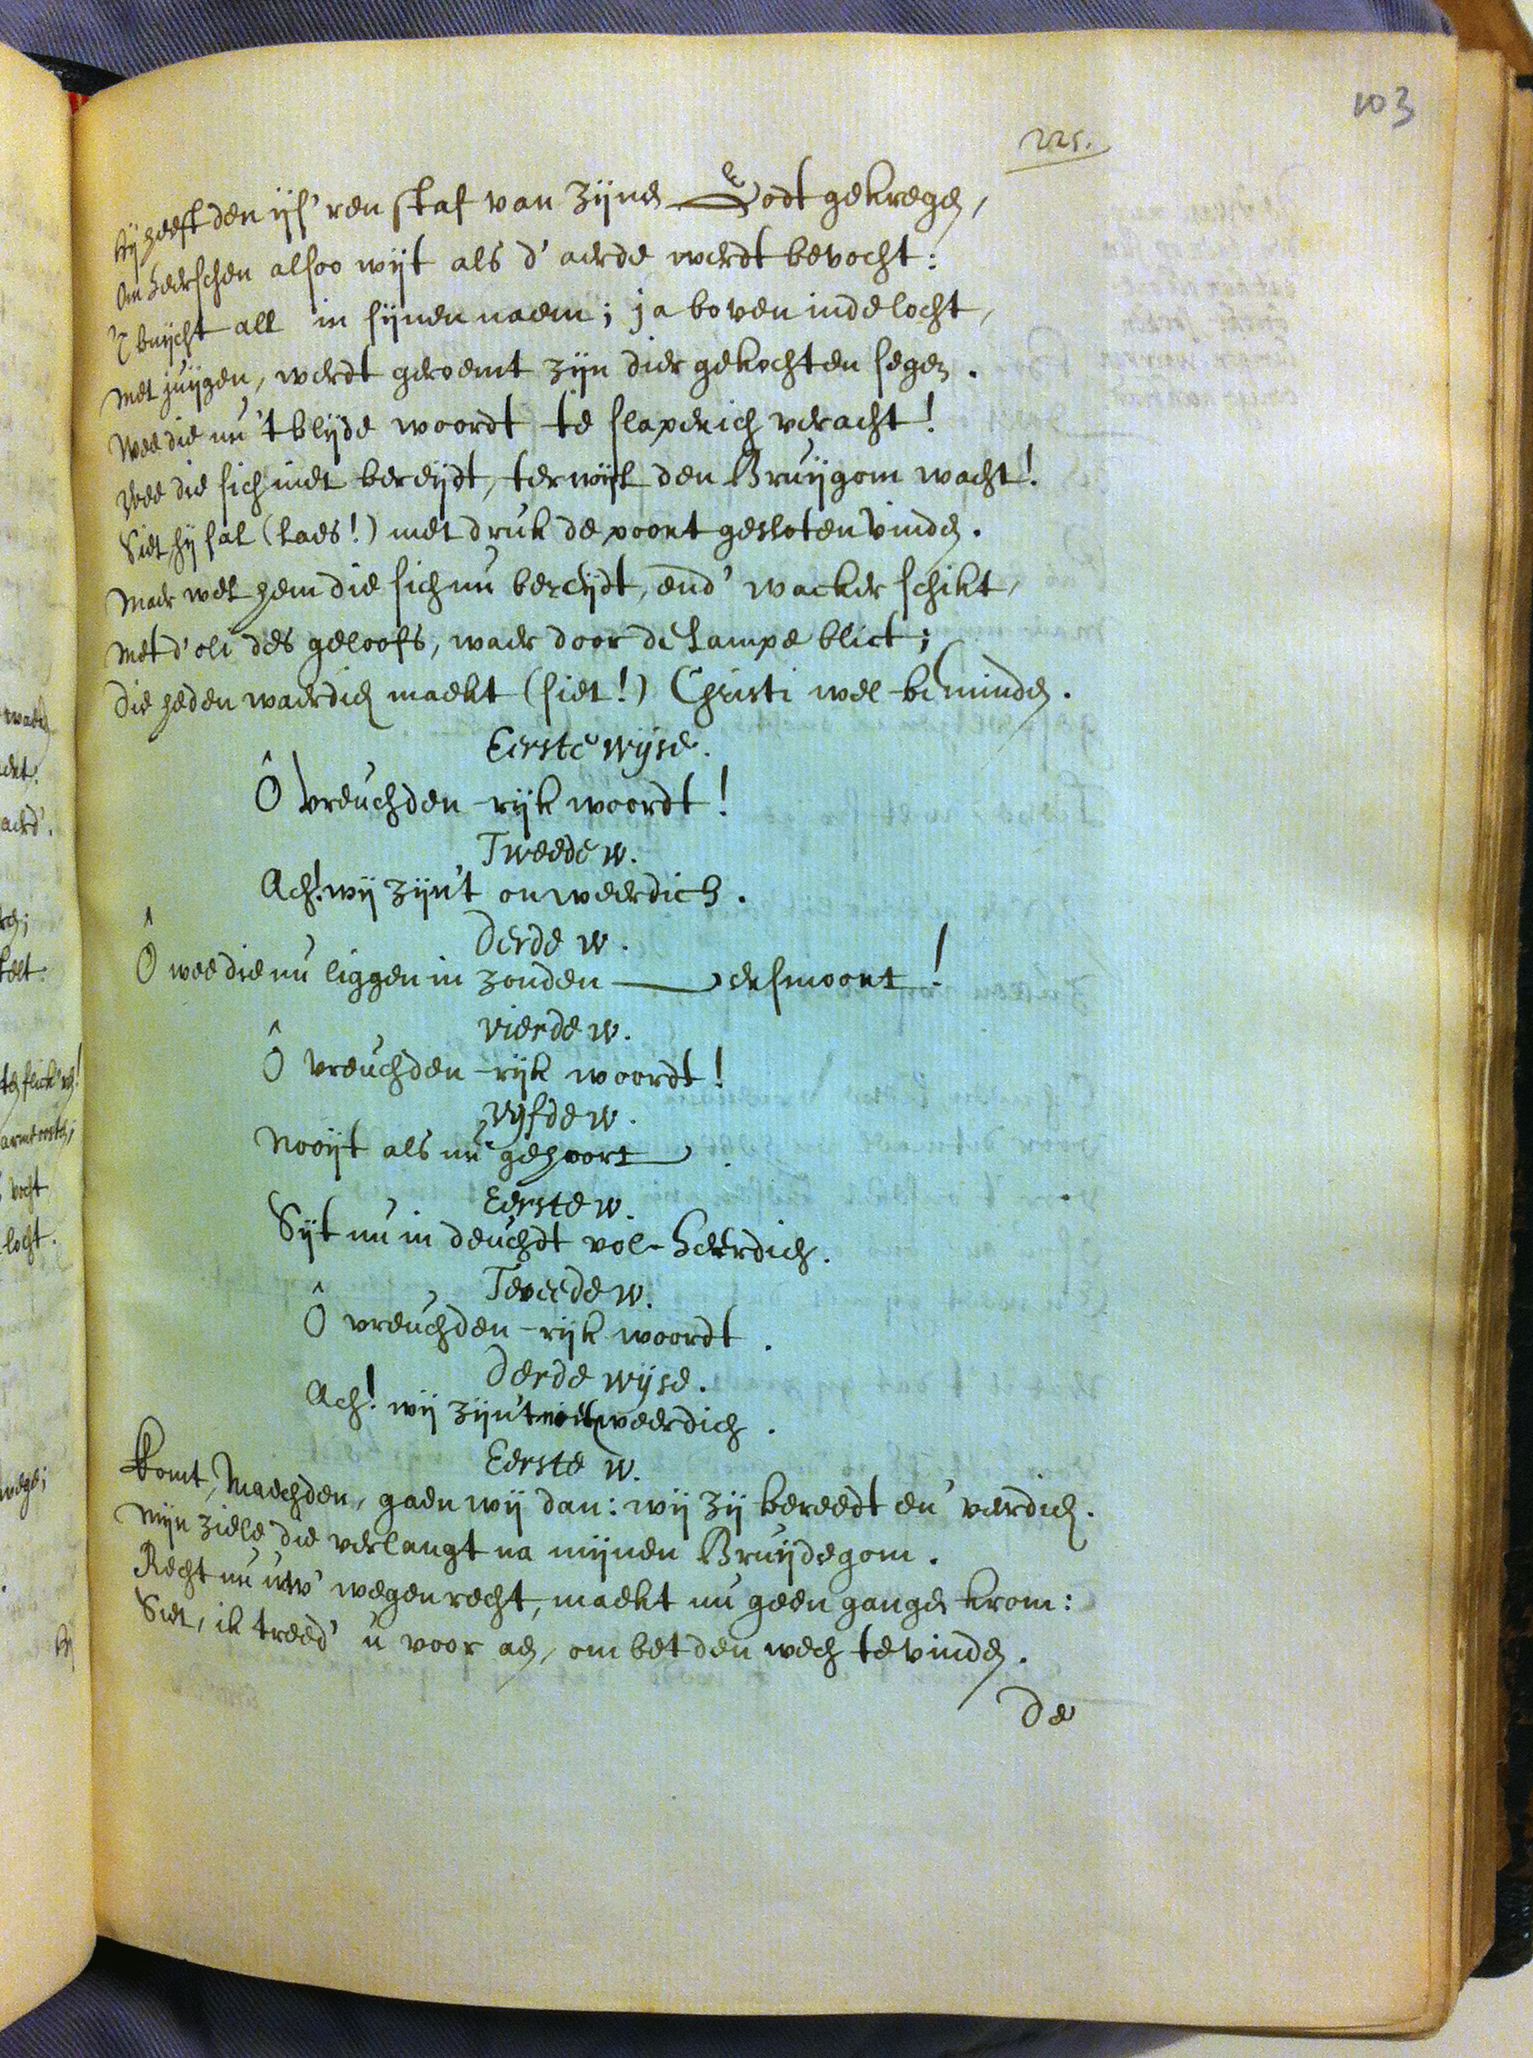 103
225.
Hy heeft den ijs'ren staf van zijnen Godt gekregen,
Om heerschen alsoo wijt als d'aerde werdt bevocht:
't buijcht all in sijnen naem; ja boven inde locht,
Met juijgen, werdt geroemt zijn dier gekochten segen.
Wee die nu 't blijde woordt te slaperich veracht!
Wee die sich niet bereijdt, terwijl den Bruijgom wacht!
Siet hij sal (laes!) met druk de poort gesloten vinden.
Maer wel hem die sich nu bereijdt, end' wacker schikt,
Met d'oli des geloofs, waer door de Lampe blict;
Die heden waerdich maekt (siet!) Christi wel-beminden.
Eerste wijse.
Ô vreuchden-rijk woordt!
Tweede w.
Ach! wij zijn't onweerdich.
Derde w.
Ô wee die nu liggen in zonden versmoort!
Vierde w.
Ô vreuchden-rijk woordt!
Vijfde w.
Nooijt als nu gehoort.
Eerste w.
Sijt nu in deuchdt vol-heerdich.
Tweede w.
Ô vreuchden-rijk woordt.
Derde wijse.
Ach! wij zijn't weerdich.
Eerste w.
Komt, Maechden, gaen wij dan: wij zij bereedt en' verdich.
Mijn ziele die verlangt na mijnen Bruijdegom.
Recht nu uw' wegen recht, maekt nu geen gangen krom:
Siet, ik treed' u voor aen, om bet den wech te vinden.
De